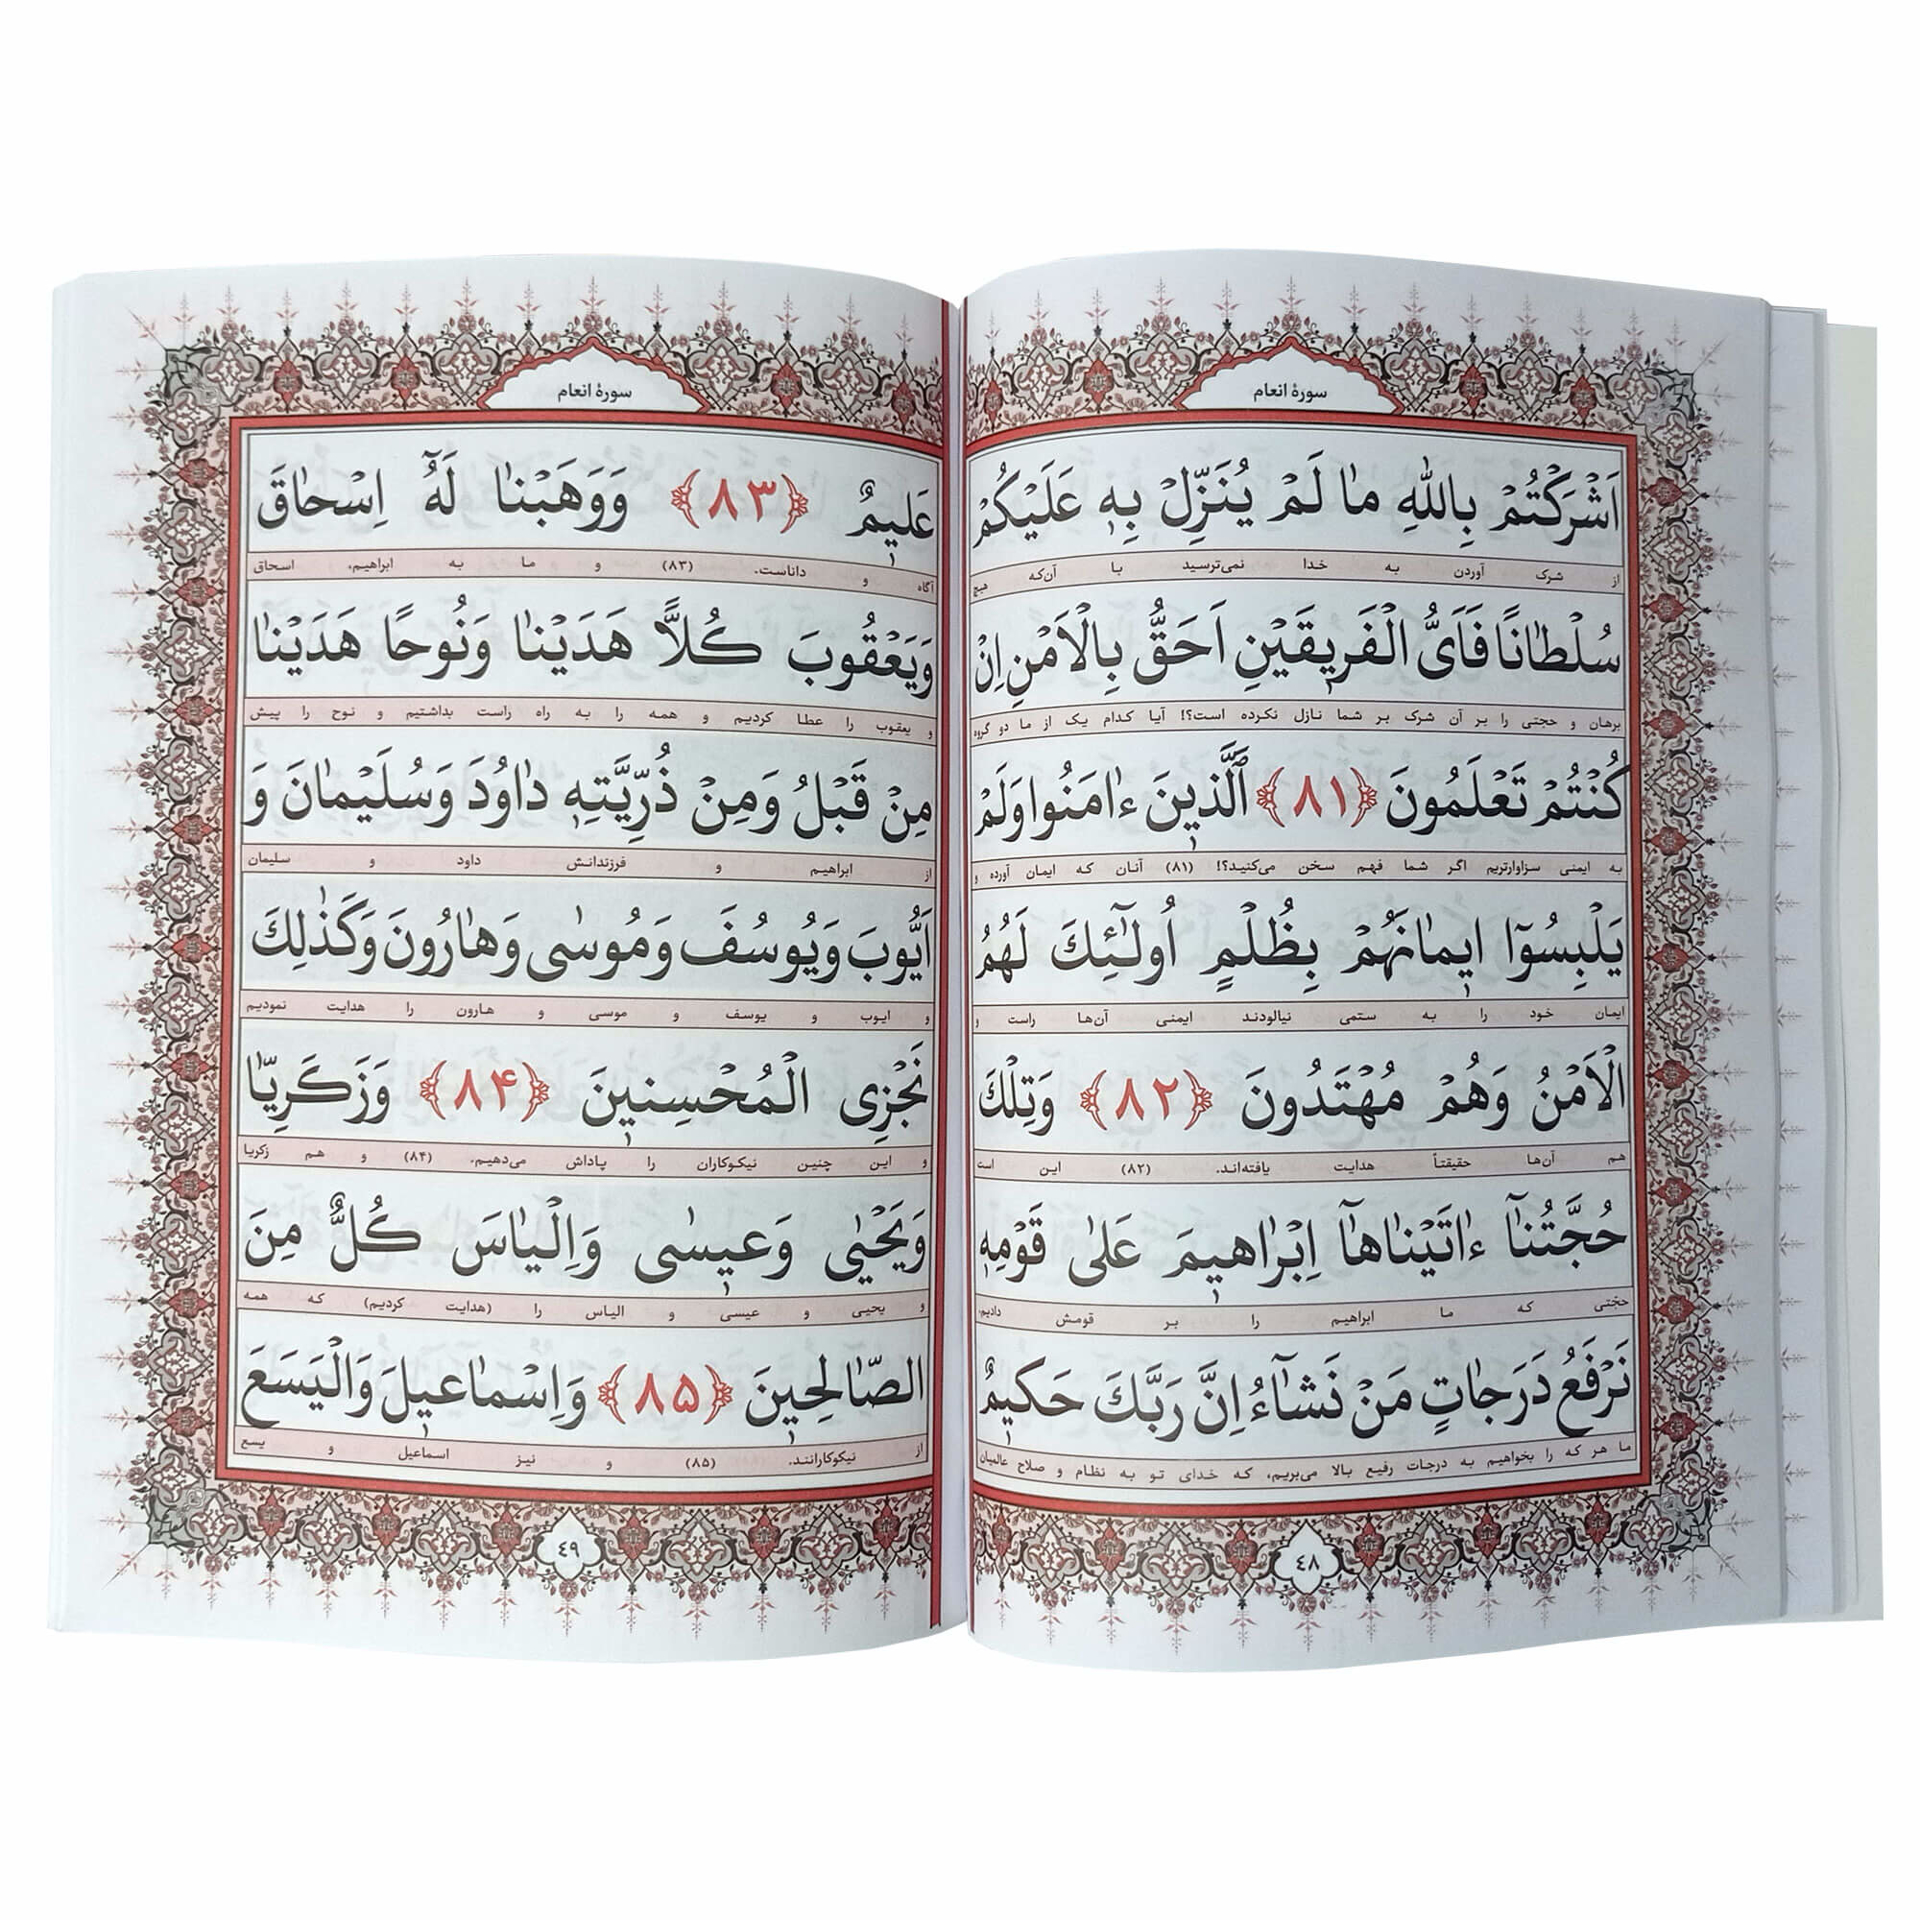 سورهٔ انعام
اَشْرَكْتُمْ بِاللّٰهِ مٰا لَمْ يُنَزِّلْ بِهٖ عَلَيْكُمْ
از شرک آوردن به خدا نمی‌ترسید با آن‌که هیچ
سُلْطٰانًا فَاَىُّ الْفَرٖيقَيْنِ اَحَقُّ بِالْاَمْنِ اِنْ
برهان و حجتی را بر آن شرک بر شما نازل نکرده است؟! آیا کدام یک از ما دو گروه
كُنْتُمْ تَعْلَمُونَ ﴿۸۱﴾ اَلَّذٖينَ ءٰامَنُوا وَلَمْ
به ایمنی سزاوارتریم اگر شما فهم سخن می‌کنید؟! (۸۱) آنان که ایمان آورده و
يَلْبِسُوٓا اٖيمٰانَهُمْ بِظُلْمٍ اُولٰٓئِكَ لَهُمُ
ایمان خود را به ستمی نیالودند ایمنی آن‌ها راست و
الْاَمْنُ وَهُمْ مُهْتَدُونَ ﴿۸۲﴾ وَتِلْكَ
هم آن‌ها حقیقتاً هدایت یافته‌اند. (۸۲) این است
حُجَّتُنٰآ ءٰاتَيْنٰاهٰآ اِبْرٰاهٖيمَ عَلٰى قَوْمِهٖ
حجّتی که ما ابراهیم را بر قومش دادیم،
نَرْفَعُ دَرَجٰاتٍ مَنْ نَشٰٓاءُ اِنَّ رَبَّكَ حَكٖيمٌ
ما هر که را بخواهیم به درجات رفیع بالا می‌بریم، که خدای تو به نظام و صلاح عالمیان
٤٨
سورهٔ انعام
عَلٖيمٌ ﴿۸۳﴾ وَوَهَبْنٰا لَهُٓ اِسْحٰاقَ
آگاه و داناست. (۸۳) و ما به ابراهیم، اسحاق
وَيَعْقُوبَ كُلًّا هَدَيْنٰا وَنُوحًا هَدَيْنٰا
و یعقوب را عطا کردیم و همه را به راه راست بداشتیم و نوح را پیش
مِنْ قَبْلُ وَمِنْ ذُرِّيَّتِهٖ دٰاوُدَ وَسُلَيْمٰانَ وَ
از ابراهیم و فرزندانش داود و سلیمان
اَيُّوبَ وَيُوسُفَ وَمُوسٰى وَهٰارُونَ وَكَذٰلِكَ
و ایوب و یوسف و موسی و هارون را هدایت نمودیم
نَجْزِى الْمُحْسِنٖينَ ﴿۸۴﴾ وَزَكَرِيّٰا
و این چنین نیکوکاران را پاداش می‌دهیم. (۸۴) و هم زکریا
وَيَحْيٰى وَعٖيسٰى وَاِلْيٰاسَ كُلٌّ مِنَ
و یحیی و عیسی و الیاس را (هدایت کردیم) که همه
الصّٰالِحٖينَ ﴿۸۵﴾ وَاِسْمٰاعٖيلَ وَالْيَسَعَ
از نیکوکارانند. (۸۵) و نیز اسماعیل و یسع
٤٩